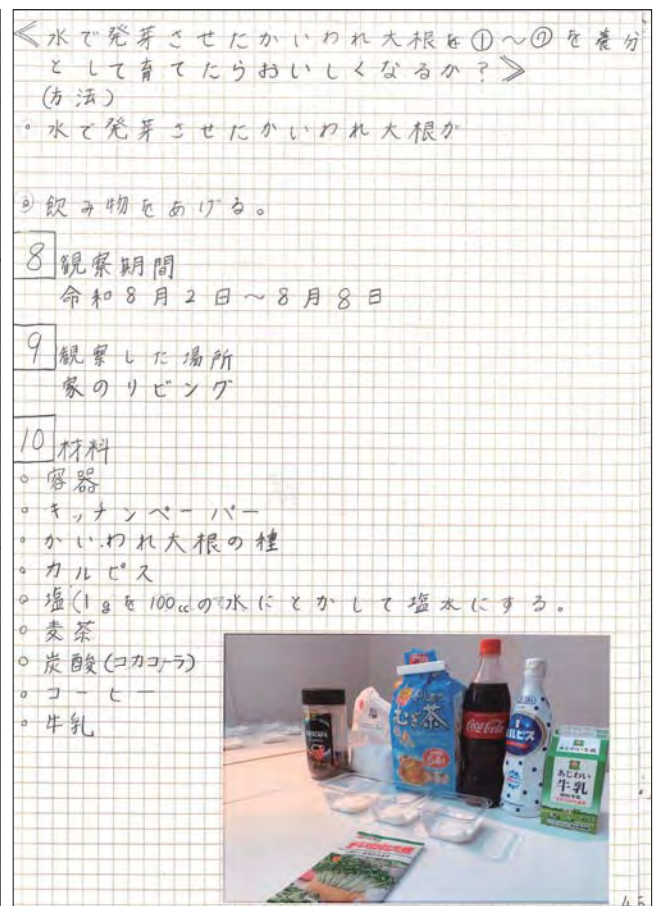 ≪水で発芽させたかいわれ大根を①～⑦を養分
として育てたらおいしくなるか？≫
(方法)
◦水で発芽させたかいわれ大根が
飲み物をあげる。
8 観察期間
令和8月2日～8月8日
9 観察した場所
家のリビング
10 材料
◦容器
◦キッチンペーパー
◦かいわれ大根の種
◦カルピス
◦塩(1gを100ccの水にとかして塩水にする。
◦麦茶
◦炭酸(コカコーラ)
◦コーヒー
◦牛乳
NESCAFE
塩
むぎ茶
Coca-Cola
カルピス
あじわい
牛乳
かいわれ大根